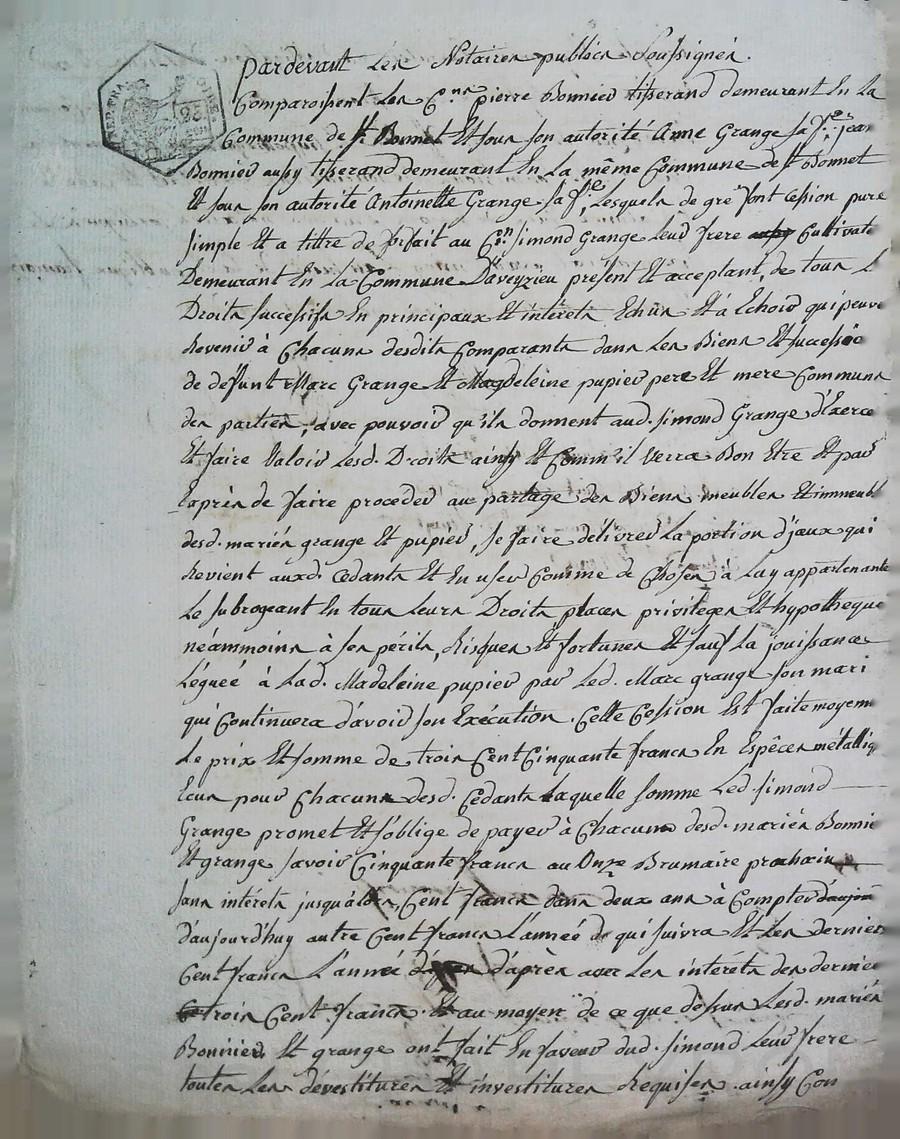 pardevant les Notaires publics Soussignés
Comparoissent les C.ns pierre Bonnier tisserand demeurant En La
Commune de S.t Bonnet Et sous son autorité Anne Grange sa f.e, jean
Bonnier aussy tisserand demeurant En La même Commune de S.t Bonnet
Et sous son autorité Antoinette Grange sa f.e, Lesquels de gré font Cession pure
simple Et a tittre de forfait au C.en simond Grange Leur frere Cultivate
Demeurant En La Commune D'aveyzieu présent Et acceptant, de tous L
Droits successifs En principaux Et intérets Echus Et à Echoir qui peuve
Revenir à Chacuns desdits Comparants dans Les Biens Et successio
de deffunt Marc Grange Et Magdeleine pupier pere Et mere Communs
des parties, avec pouvoir qu'ils donnent aud. simond Grange d'Exerce
Et faire Valoir Lesd. Droits ainsy Et Comm'il Verra Bon Etre Et par
Exprès de faire proceder au partage des Biens meubles Et immeubl
desd. mariés grange Et pupier, se faire délivrer La portion d'jceux qui
Revient auxd. Cédants Et En user Comme de Choses à Luy appartenante
Le subrogeant En tous Leurs Droits places privileges Et hypotheque
néammoins à ses périls, Risques Et fortunes Et sauf La jouissance
Léguée à Lad. Madeleine pupier par Led. Marc grange son mari
qui Continuera d'avoir son Exécution. Cette Cession Est faite moyenn
Le prix Et somme de trois Cent Cinquante francs En Espêces métalliq
Ecus pour Chacuns desd. Cédants Laquelle somme Led. simond
Grange promet Et s'oblige de payer à Chacuns desd. mariés Bonnie
Et grange savoir Cinquante francs au Onze Brumaire prochain
sans intérets jusqu'alors, Cent francs dans deux ans à Compter d'aujou
d'aujourd'huy autre Cent francs L'année qui suivra Et Les derniers
Cent francs L'année d'après avec Les intérets des dernie
trois Cent francs. Et au moyen de ce que dessus Lesd. mariés
Bonnier Et grange ont fait En faveur dud. simond Leur frere
toutes Les dévestitures Et investitures Requises. ainsy Con